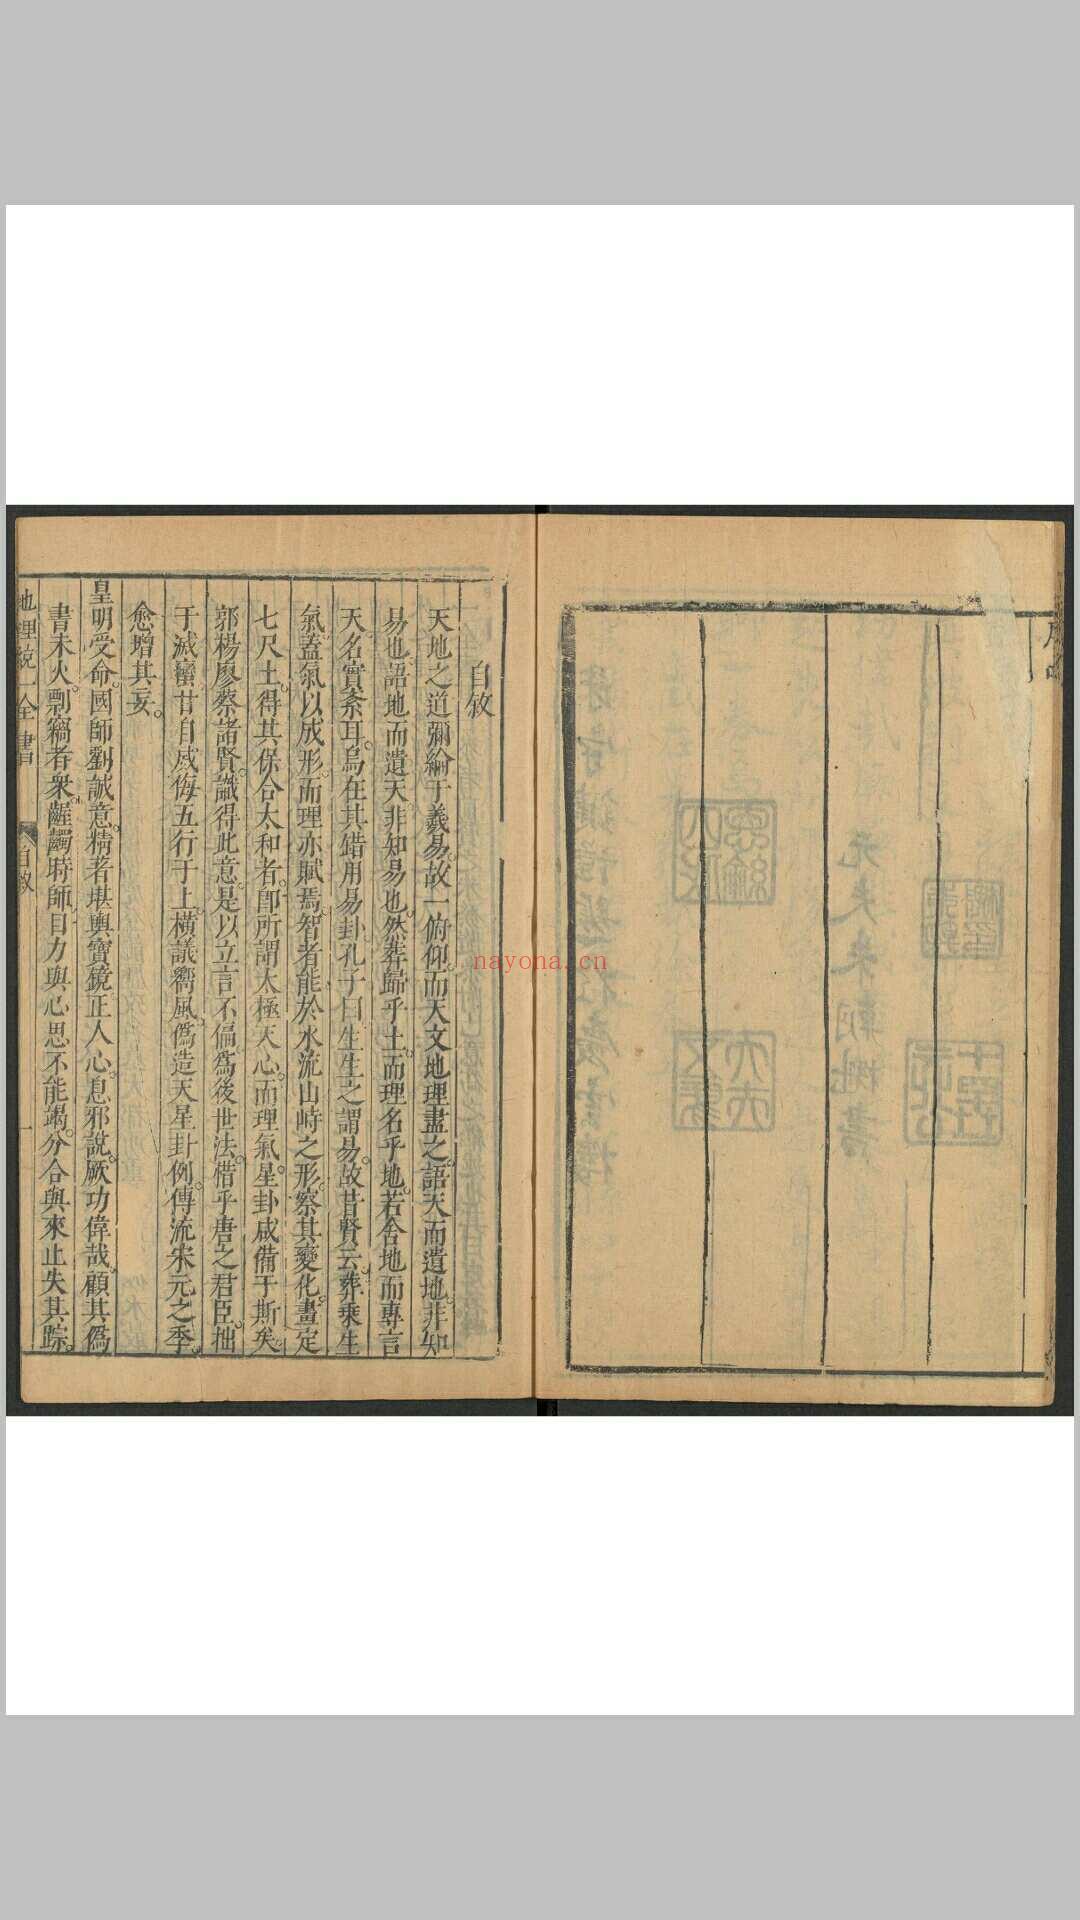 自敘
天地之道彌綸于羲易。故一俯仰。而天文地理盡之。語天而遺地。非知
易也。語地而遺天。非知易也。然葬歸乎土。而理名乎地。若舍地而專言
天。名實紊耳。烏在其錯用易卦。孔子曰。生生之謂易。故昔賢云。葬乘生
氣。蓋氣以成形。而理亦賦焉。智者能於水流山峙之形。察其變化。畫定
七尺土。得其保合太和者。卽所謂太極天心。而理氣星卦咸備于斯矣。
郭楊廖蔡諸賢。識得此意。是以立言不偏。爲後世法。楷乎唐之君臣。拙
于滅蠻。甘自威侮五行于上。橫議嚮風。僞造天星卦例。傳流宋元之季。
愈增其妄。
皇明受命。國師劉誠意。精著堪輿寶鏡。正人心。息邪說。厥功偉哉。顧其僞
書未火。剽竊者衆。齷齪時師。目力與心思不能竭。分合與來止失其踪。
地理統一全書
自敘
一
nayona.cn